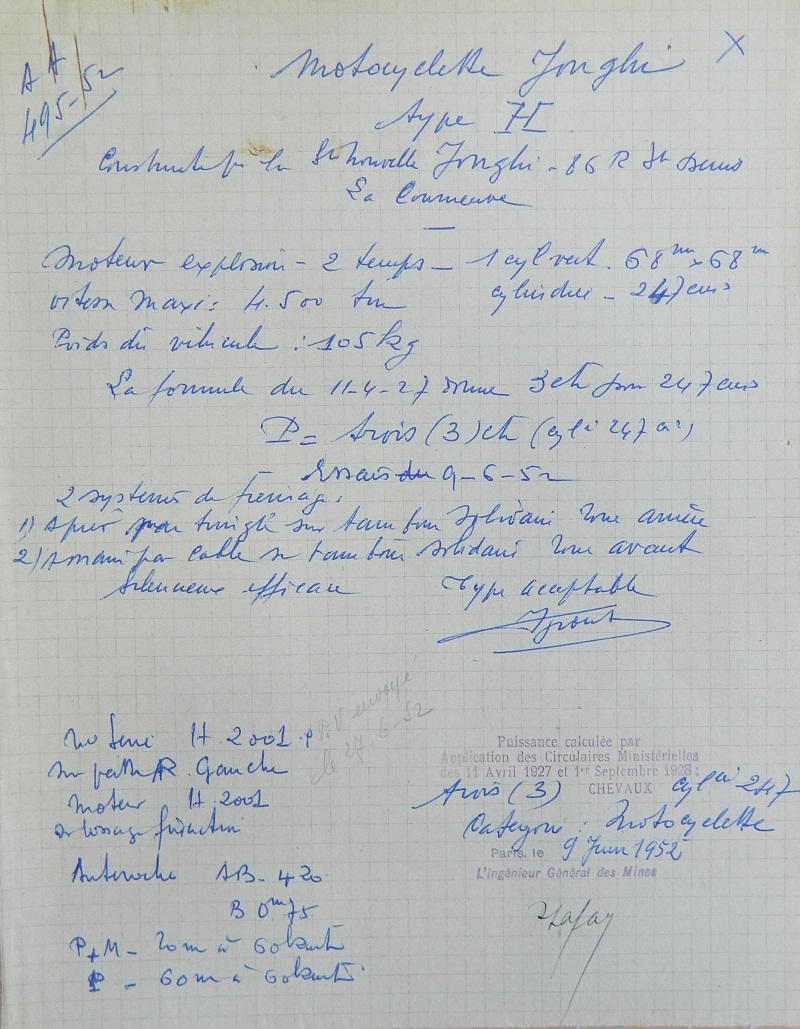 AA
495-52
Motocyclette Jonghi X
type H
Construite par la Sté nouvelle Jonghi - 86 R St Denis
La Courneuve
Moteur explosion - 2 temps - 1 cyl vert. 68 mm x 68 mm
vitesse maxi: 4.500 t/m cylindrée - 247 cm3
Poids du véhicule : 105 kg
La formule du 11-4-27 donne 3 ch pour 247 cm3
P = trois (3) ch (cylée 247 cm3)
Essais du 9-6-52
2 systèmes de freinage:
1) à pied par tringle sur tambour solidaire roue arrière
2) à main par cable sur tambour solidaire roue avant
Silencieux efficace Type acceptable
No Série H.2001.P
sur patte AR. Gauche
moteur H.2001
P.V envoyé
le 27.6-52
Puissance calculée par
Application des Circulaires Ministérielles
des 11 Avril 1927 et 1er Septembre 1928:
trois (3) CHEVAUX cylée 247
Catégorie : Motocyclette
Paris, le 9 Juin 1952
L'Ingénieur Général des Mines
Antivols AB- 420
B 0m75
P+M - 20 m à 60 km/h
P - 60 m à 60 km/h